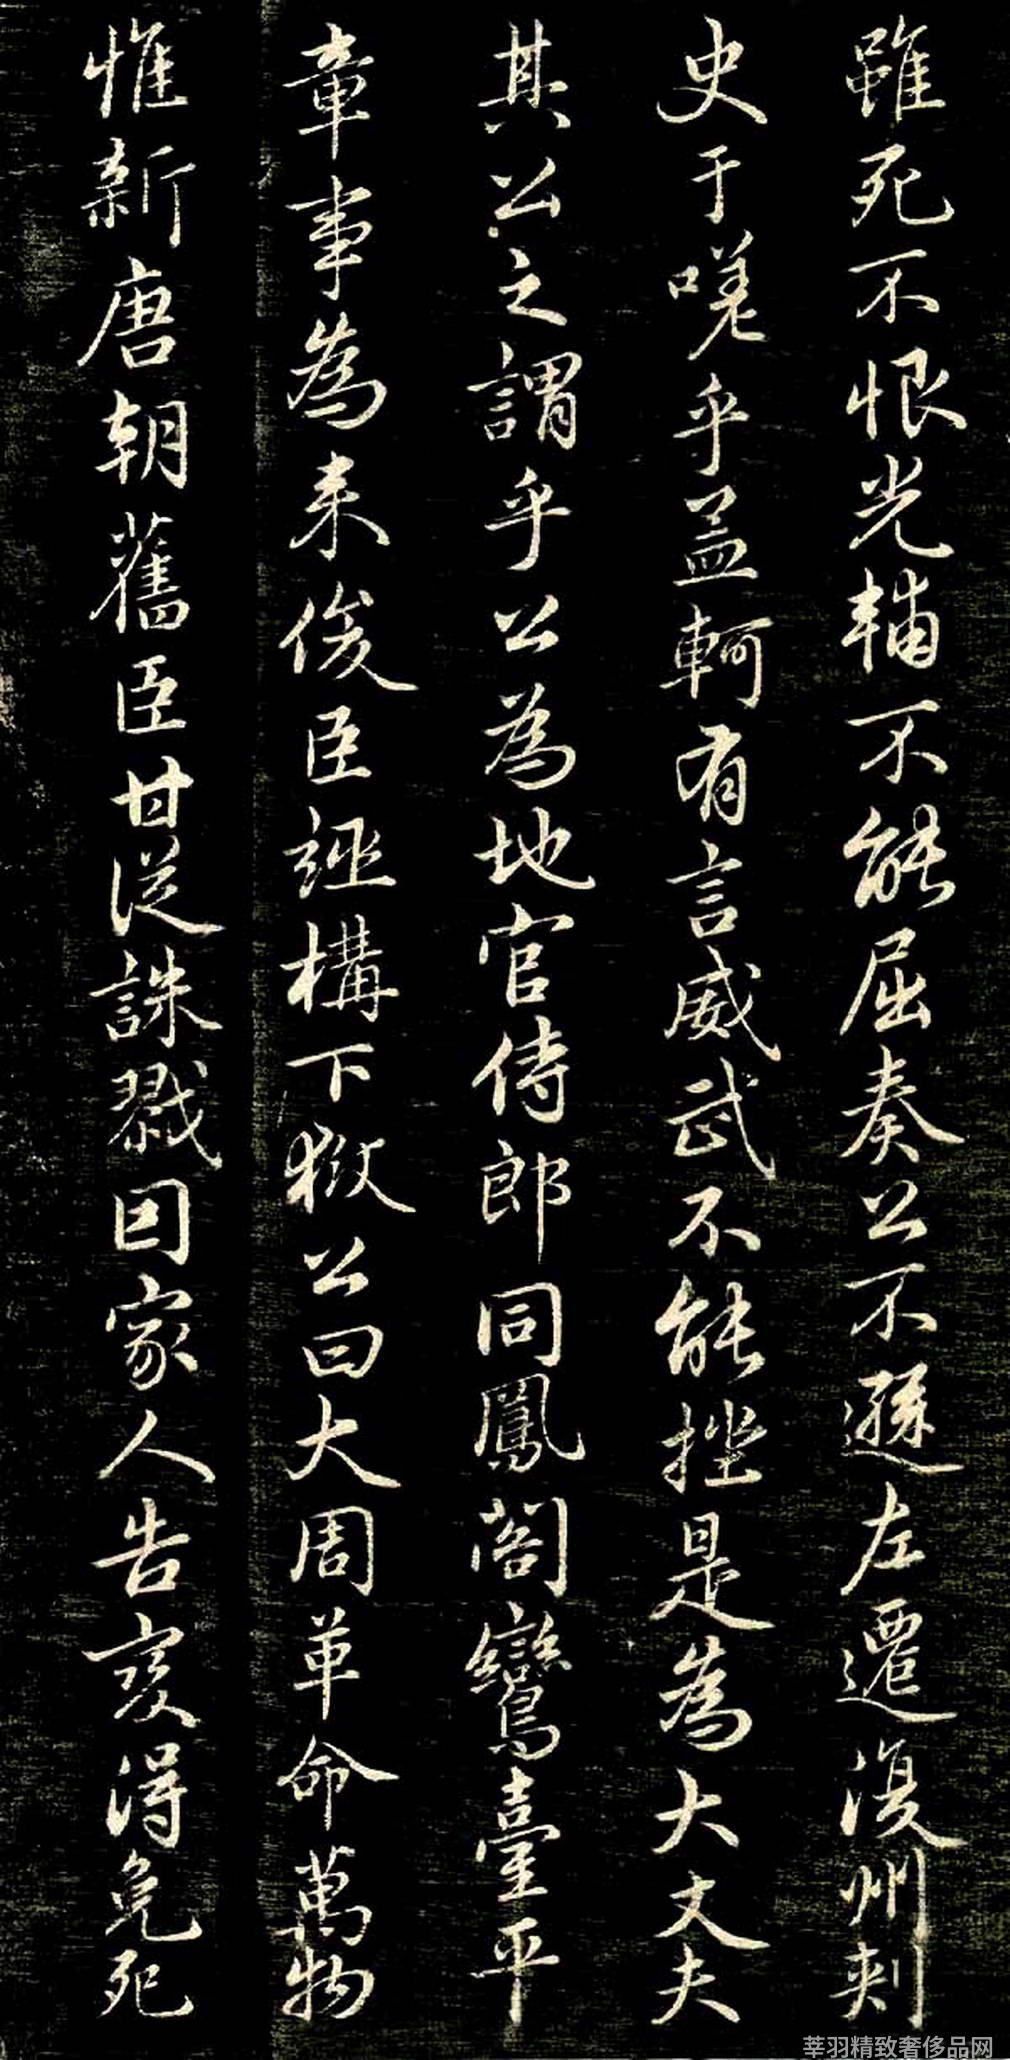 雖死不恨光輔不能屈奏公不遜左遷復州刺
史于嗟乎孟軻有言威武不能挫是為大丈夫
其公之謂乎公為地官侍郎同鳳閣鸞臺平
章事為来俊臣誣構下獄公曰大周革命萬物
惟新唐朝舊臣甘從誅戮因家人告變得免死
莘羽精致奢侈品网